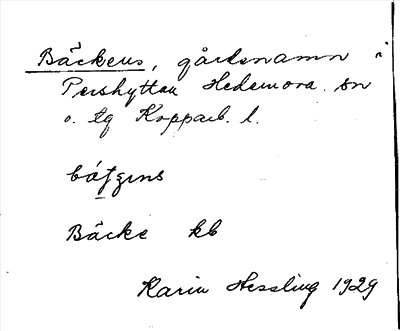 Bäckens, gårdsnamn i
Pershyttan Hedemora sn
o. tg Kopparb. l.
Bäcke kb
Karin Hessling 1929